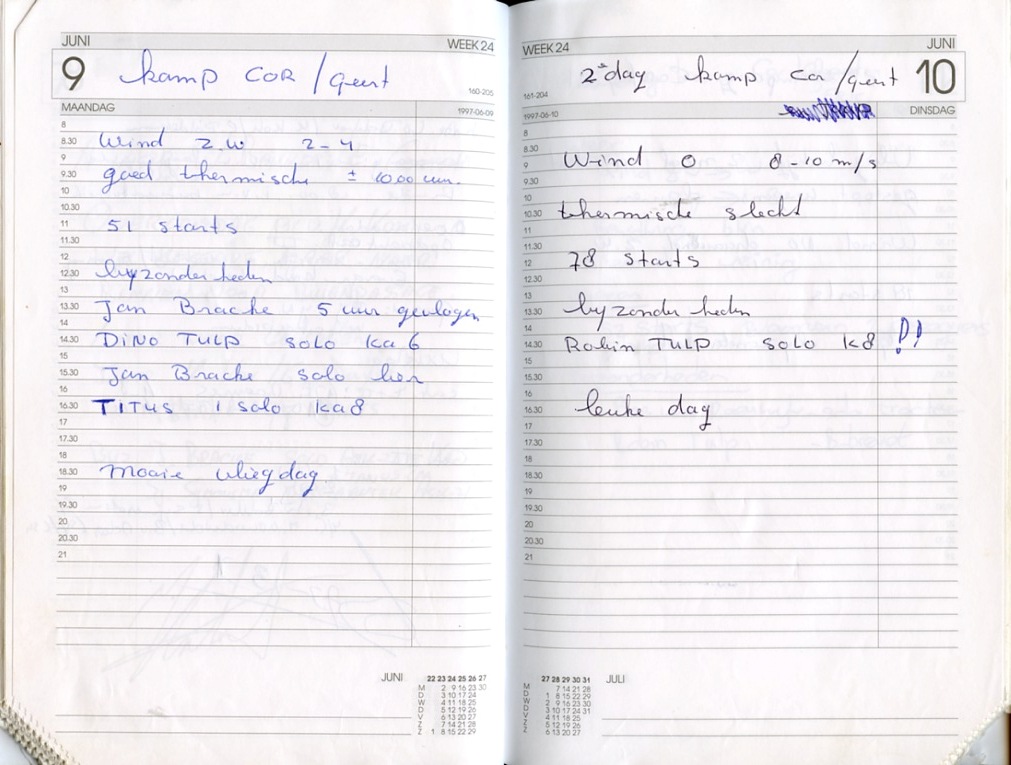 JUNI WEEK 24
9 kamp COR / Geert
160-205
MAANDAG 1997-06-09
8
8.30 Wind Z.W 2-4
9
9.30 goed thermische ± 1000 um.
10
10.30
11 51 starts
11.30
12
12.30 byzonderheden
13
13.30 Jan Brache 5 uur gevlogen
14
14.30 DINO TULP solo Ka6
15
15.30 Jan Brache solo
16
16.30 TITUS 1 solo Ka8
17
17.30
18
18.30 Mooie vliegdag
19
19.30
20
20.30
21
JUNI 22 23 24 25 26 27
M 2 9 16 23 30
D 3 10 17 24
W 4 11 18 25
D 5 12 19 26
V 6 13 20 27
Z 7 14 21 28
Z 1 8 15 22 29
WEEK 24 JUNI
2e dag kamp Cor / Geert 10
161-204
1997-06-10 DINSDAG
8
8.30
9 Wind O 8-10 m/s
9.30
10
10.30 thermische slecht
11
11.30
12 78 starts
12.30
13
13.30 byzonderheden
14
14.30 Robin TULP solo K8 !!
15
15.30
16
16.30 leuke dag
17
17.30
18
18.30
19
19.30
20
20.30
21
27 28 29 30 31 JULI
M 7 14 21 28
D 1 8 15 22 29
W 2 9 16 23 30
D 3 10 17 24 31
V 4 11 18 25
Z 5 12 19 26
Z 6 13 20 27